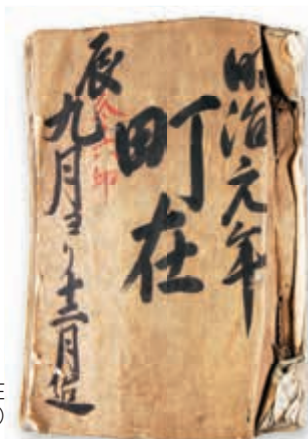 明治元年
町在
辰九月ヨリ十二月迄